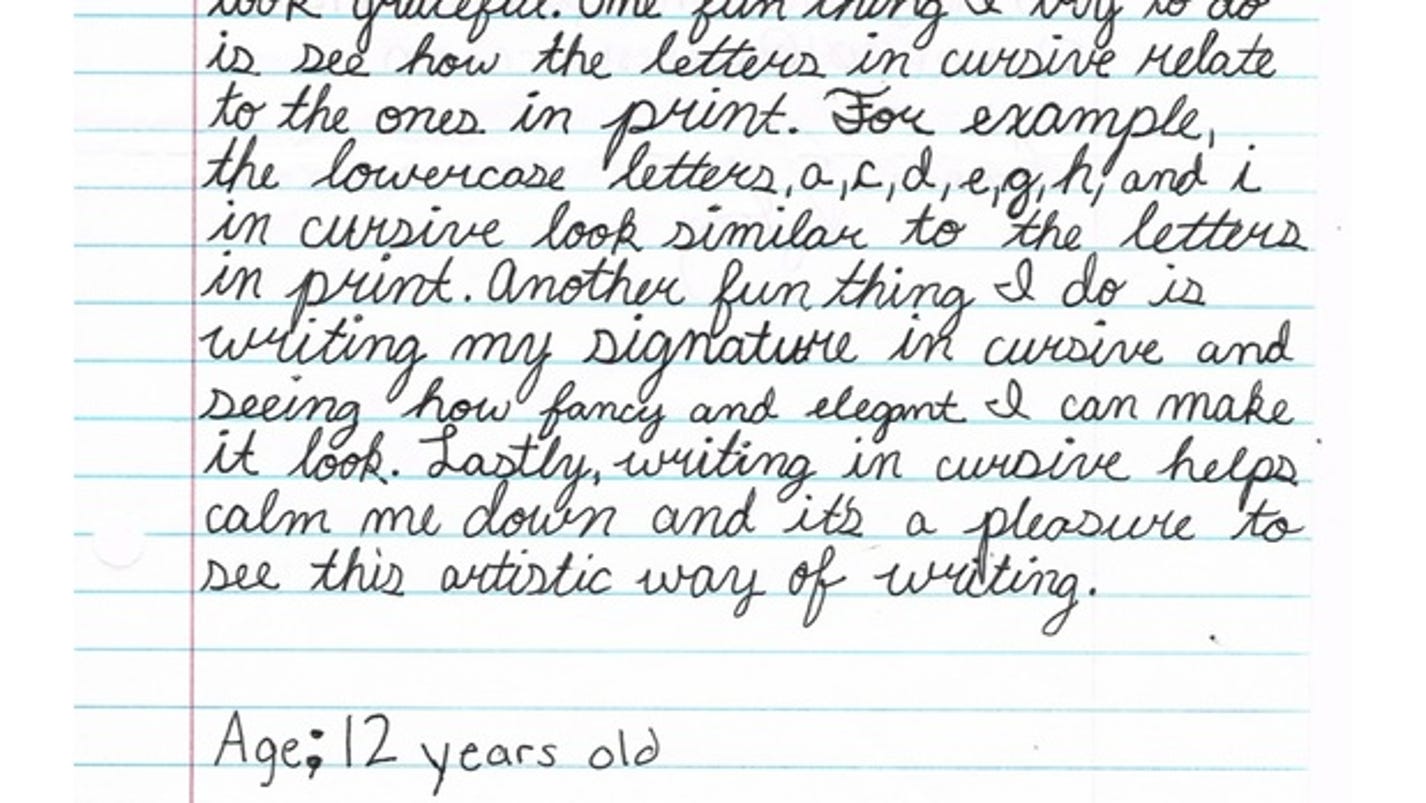 look graceful. One fun thing I try to do
is see how the letters in cursive relate
to the ones in print. For example,
the lowercase letters, a, c, d, e, g, h, and i
in cursive look similar to the letters
in print. Another fun thing I do is
writing my signature in cursive and
seeing how fancy and elegant I can make
it look. Lastly, writing in cursive helps
calm me down and it's a pleasure to
see this artistic way of writing.
Age; 12 years old